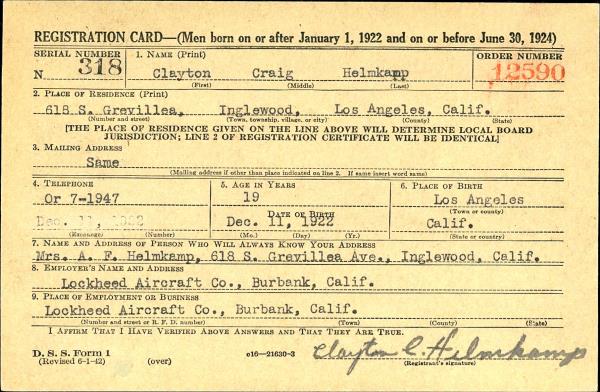 REGISTRATION CARD—(Men born on or after January 1, 1922 and on or before June 30, 1924)
SERIAL NUMBER 1. NAME (Print) ORDER NUMBER
N 318 Clayton Craig Helmkamp 12590
(First) (Middle) (Last)
2. PLACE OF RESIDENCE (Print)
618 S. Grevillea, Inglewood, Los Angeles, Calif.
(Number and street) (Town, township, village, or city) (County) (State)
[THE PLACE OF RESIDENCE GIVEN ON THE LINE ABOVE WILL DETERMINE LOCAL BOARD
JURISDICTION; LINE 2 OF REGISTRATION CERTIFICATE WILL BE IDENTICAL]
3. MAILING ADDRESS
Same
(Mailing address if other than place indicated on line 2. If same insert word same)
4. TELEPHONE 5. AGE IN YEARS 6. PLACE OF BIRTH
Or 7-1947 19 Los Angeles
DATE OF BIRTH (Town or county)
Dec. 11, 1922 Dec. 11, 1922 Calif.
(Exchange) (Number) (Mo.) (Day) (Yr.) (State or country)
7. NAME AND ADDRESS OF PERSON WHO WILL ALWAYS KNOW YOUR ADDRESS
Mrs. A. F. Helmkamp, 618 S. Grevillea Ave., Inglewood, Calif.
8. EMPLOYER'S NAME AND ADDRESS
Lockheed Aircraft Co., Burbank, Calif.
9. PLACE OF EMPLOYMENT OR BUSINESS
Lockheed Aircraft Co., Burbank, Calif.
(Number and street or R. F. D. number) (Town) (County) (State)
I AFFIRM THAT I HAVE VERIFIED ABOVE ANSWERS AND THAT THEY ARE TRUE.
D. S. S. Form 1
(Revised 6-1-42) (over) c16—21630-3 Clayton C. Helmkamp
(Registrant's signature)